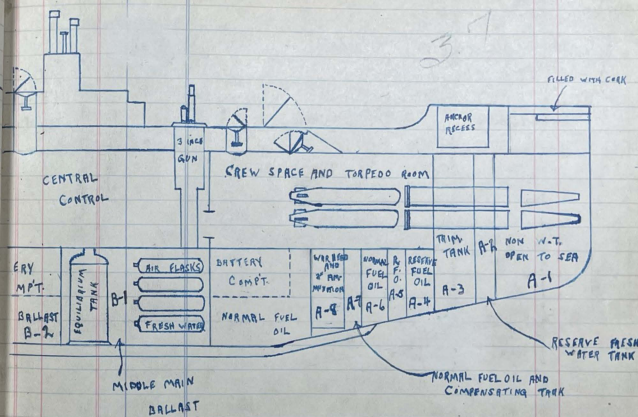 3.7
FILLED WITH CORK
ANCHOR
RECESS
3 INCH
GUN
CENTRAL
CONTROL
CREW SPACE AND TORPEDO ROOM
ERY
MP'T.
BALLAST
B-2
EQUILIBRIUM
TANK
B-1
AIR FLASKS
FRESH WATER
BATTERY
COMP'T.
NORMAL FUEL
OIL
WARHEAD
AND
3" AM-
MUNITION
A-8
A-7
NORMAL
FUEL
OIL
A-6
R.
F.O.
A-5
RESERVE
FUEL
OIL
A-4
TRIM
TANK
A-3
A-2
NON W.T.
OPEN TO SEA
A-1
RESERVE FRESH
WATER TANK
NORMAL FUEL OIL AND
COMPENSATING TANK
MIDDLE MAIN
BALLAST